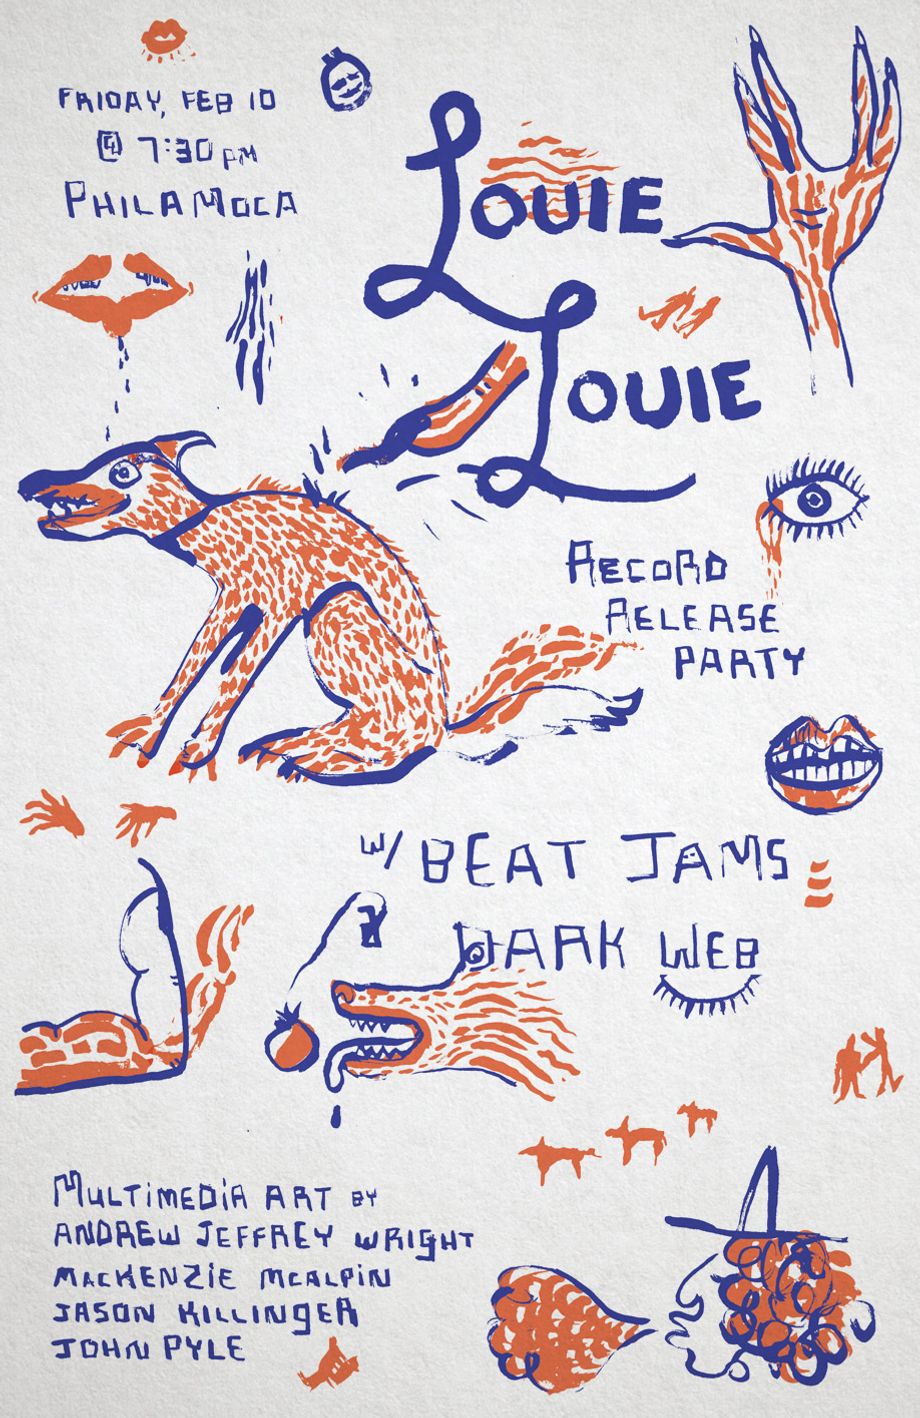 FRIDAY, FEB 10
@ 7:30 PM
PHILAMOCA
LOUIE
LOUIE
RECORD
RELEASE
PARTY
W/ BEAT JAMS
DARK WEB
MULTIMEDIA ART BY
ANDREW JEFFREY WRIGHT
MACKENZIE MCALPIN
JASON KILLINGER
JOHN PYLE